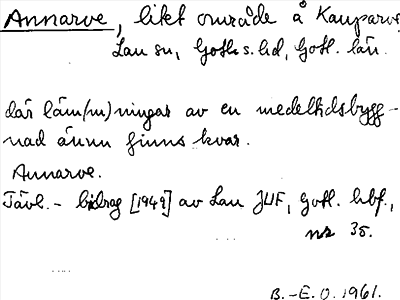 Annarve, likt område å Kauparve,
Lau sn, Goth. s. hd, Gotl. län.
där läm(m)ningar av en medeltidsbygg-
nad ännu finns kvar.
Annarve.
Tävl.- bidrag [1949] av Lau JUF, Gotl. hbf,
nr 35.
B.-E. O. 1961.